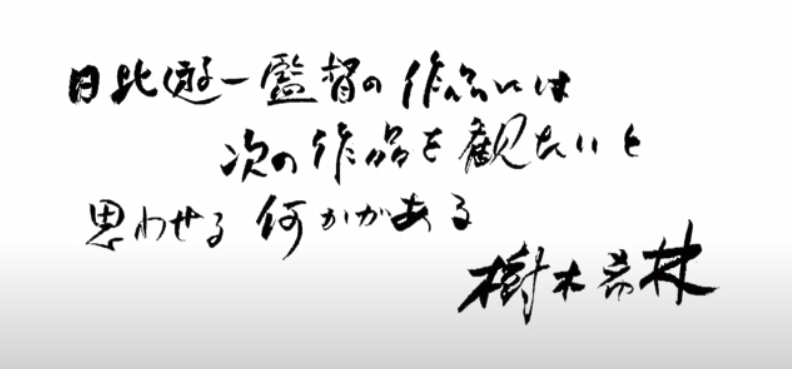 日比遊一監督の作品には
次の作品を観たいと
思わせる何かがある
樹木希林